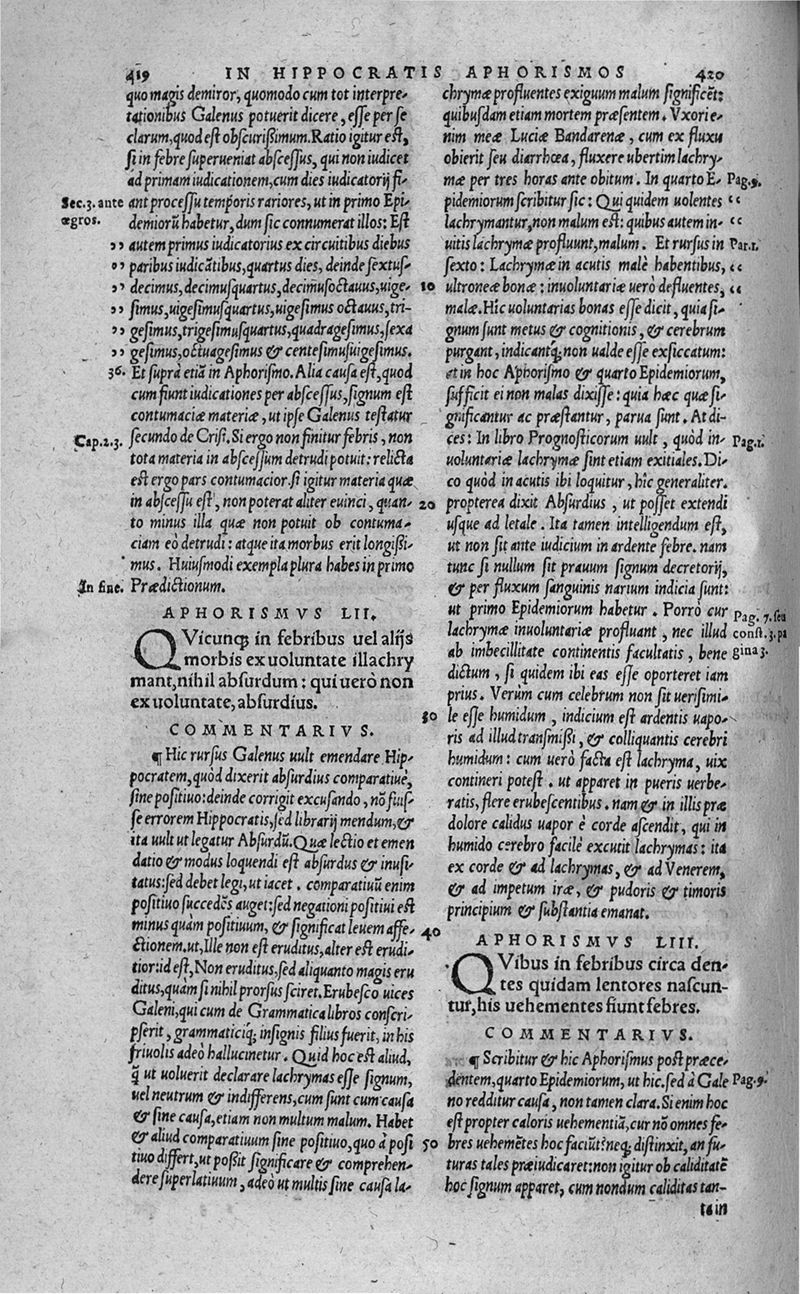 419 IN HIPPOCRATIS APHORISMOS 420
quo magis demiror, quomodo cum tot interpre-
tationibus Galenus potuerit dicere, esse per se
clarum, quod est obscurißimum. Ratio igitur est,
si in febre superueniat abscessus, qui non iudicet
ad primam iudicationem, cum dies iudicatorij fi-
Sec. 3. ante ant processu temporis rariores, ut in primo Epi
ægros. demiorũ habetur, dum sic connumerat illos: Est
,, autem primus iudicatorius ex circuitibus diebus
,, paribus iudicãtibus, quartus dies, deinde sextus,
,, decimus, decimusquartus, decimusoctauus, uige- 10
,, simus, uigesimusquartus, uigesimus octauus, tri-
,, gesimus, trigesimusquartus, quadragesimus, sexa
,, gesimus, octuagesimus & centesimusuigesimus.
36. Et suprà etiã in Aphorismo. Alia causa est, quod
cum fiunt iudicationes per abscessus, signum est
contumaciæ materiæ, ut ipse Galenus testatur
Cap. 2. 3. secundo de Crisi, Si ergo non finitur febris, non
tota materia in abscessum detrudi potuit: relicta
est ergo pars contumacior. si igitur materia quæ
in abscessu est, non poterat aliter euinci, quan- 20
to minus illa quæ non potuit ob contuma-
ciam eò detrudi: atque ita morbus erit longißi-
mus. Huiusmodi exempla plura habes in primo
In fine. Prædictionum.
APHORISMVS LII.
QVicunq; in febribus uel alijs
morbis ex uoluntate illachry
mant, nihil absurdum: qui uerò non
ex uoluntate, absurdius.
COMMENTARIVS. 30
¶ Hic rursus Galenus uult emendare Hip-
pocratem, quòd dixerit absurdius comparatiuè,
sine positiuo: deinde corrigit excusando, nõ fuis-
se errorem Hippocratis, sed librarij mendum, &
ita uult ut legatur Absurdũ. Quæ lectio et emen
datio & modus loquendi est absurdus & inusi-
tatus: sed debet legi, ut iacet. comparatiuũ enim
positiuo succedẽs auget: sed negationi positiui est
minus quàm positiuum, & significat leuem affe- 40
ctionem. ut, Ille non est eruditus, alter est erudi-
tior: id est, Non eruditus, sed aliquanto magis eru
ditus, quàm si nihil prorsus sciret. Erubesco uices
Galeni, qui cum de Grammatica libros conscri-
pserit, grammaticiq; insignis filius fuerit, in his
friuolis adeò hallucinetur. Quid hoc est aliud,
q̃ ut uoluerit declarare lachrymas esse signum,
uel neutrum & indifferens, cum sunt cum causa
& sine causa, etiam non multum malum. Habet
& aliud comparatiuum sine positiuo, quo à posi 50
tiuo differt, ut poßit significare & comprehen-
dere superlatiuum, adeò ut multis sine causa la-
chrymæ profluentes exiguum malum significẽt:
quibusdam etiam mortem præsentem. Vxori e-
nim meæ Luciæ Bandarenæ, cum ex fluxu
obierit seu diarrhœa, fluxere ubertim lachry-
mæ per tres horas ante obitum. In quarto E- Pag. 9.
pidemiorum scribitur sic: Qui quidem uolentes “
lachrymantur, non malum est: quibus autem in- “
uitis lachrymæ profluunt, malum. Et rursus in Par. 1.
sexto: Lachrymæ in acutis malè habentibus, “
ultroneæ bonæ: inuoluntariæ uerò defluentes, “
malæ. Hic uoluntarias bonas esse dicit, quia si-
gnum sunt metus & cognitionis, & cerebrum
purgant, indicantq; non ualde esse exsiccatum:
et in hoc Aphorismo & quarto Epidemiorum,
sufficit ei non malas dixisse: quia hæc quæ si-
gnificantur ac præstantur, parua sunt. At di-
ces: In libro Prognosticorum uult, quòd in- Pag. 1.
uoluntariæ lachrymæ sint etiam exitiales. Di-
co quòd in acutis ibi loquitur, hic generaliter.
propterea dixit Absurdius, ut posset extendi
usque ad letale. Ita tamen intelligendum est,
ut non sit ante iudicium in ardente febre. nam
tunc si nullum sit prauum signum decretorij,
& per fluxum sanguinis narium indicia sunt:
ut primo Epidemiorum habetur. Porrò cur Pag. 7. seu
lachrymæ inuoluntariæ profluant, nec illud const. 3. pa
ab imbecillitate continentis facultatis, bene gina 3.
dictum, si quidem ibi eas esse oporteret iam
prius. Verùm cum celebrum non sit uerisimi-
le esse humidum, indicium est ardentis uapo-
ris ad illud transmißi, & colliquantis cerebri
humidum: cum uerò facta est lachryma, uix
contineri potest. ut apparet in pueris uerbe-
ratis, flere erubescentibus. nam & in illis præ
dolore calidus uapor è corde ascendit, qui in
humido cerebro facilè excutit lachrymas: ita
ex corde & ad lachrymas, & ad Venerem,
& ad impetum iræ, & pudoris & timoris
principium & substantia emanat.
APHORISMVS LIII.
QVibus in febribus circa den-
tes quidam lentores nascun-
tur, his uehementes fiunt febres.
COMMENTARIVS.
¶ Scribitur & hic Aphorismus post præce-
dentem, quarto Epidemiorum, ut hic. sed à Gale Pag. 9.
no redditur causa, non tamen clara. Si enim hoc
est propter caloris uehementiã, cur nõ omnes fe-
bres uehemẽtes hoc faciũt? neq; distinxit, an fu-
turas tales præiudicaret: non igitur ob caliditatẽ
hoc signum apparet, cum nondum caliditas tan-
tain